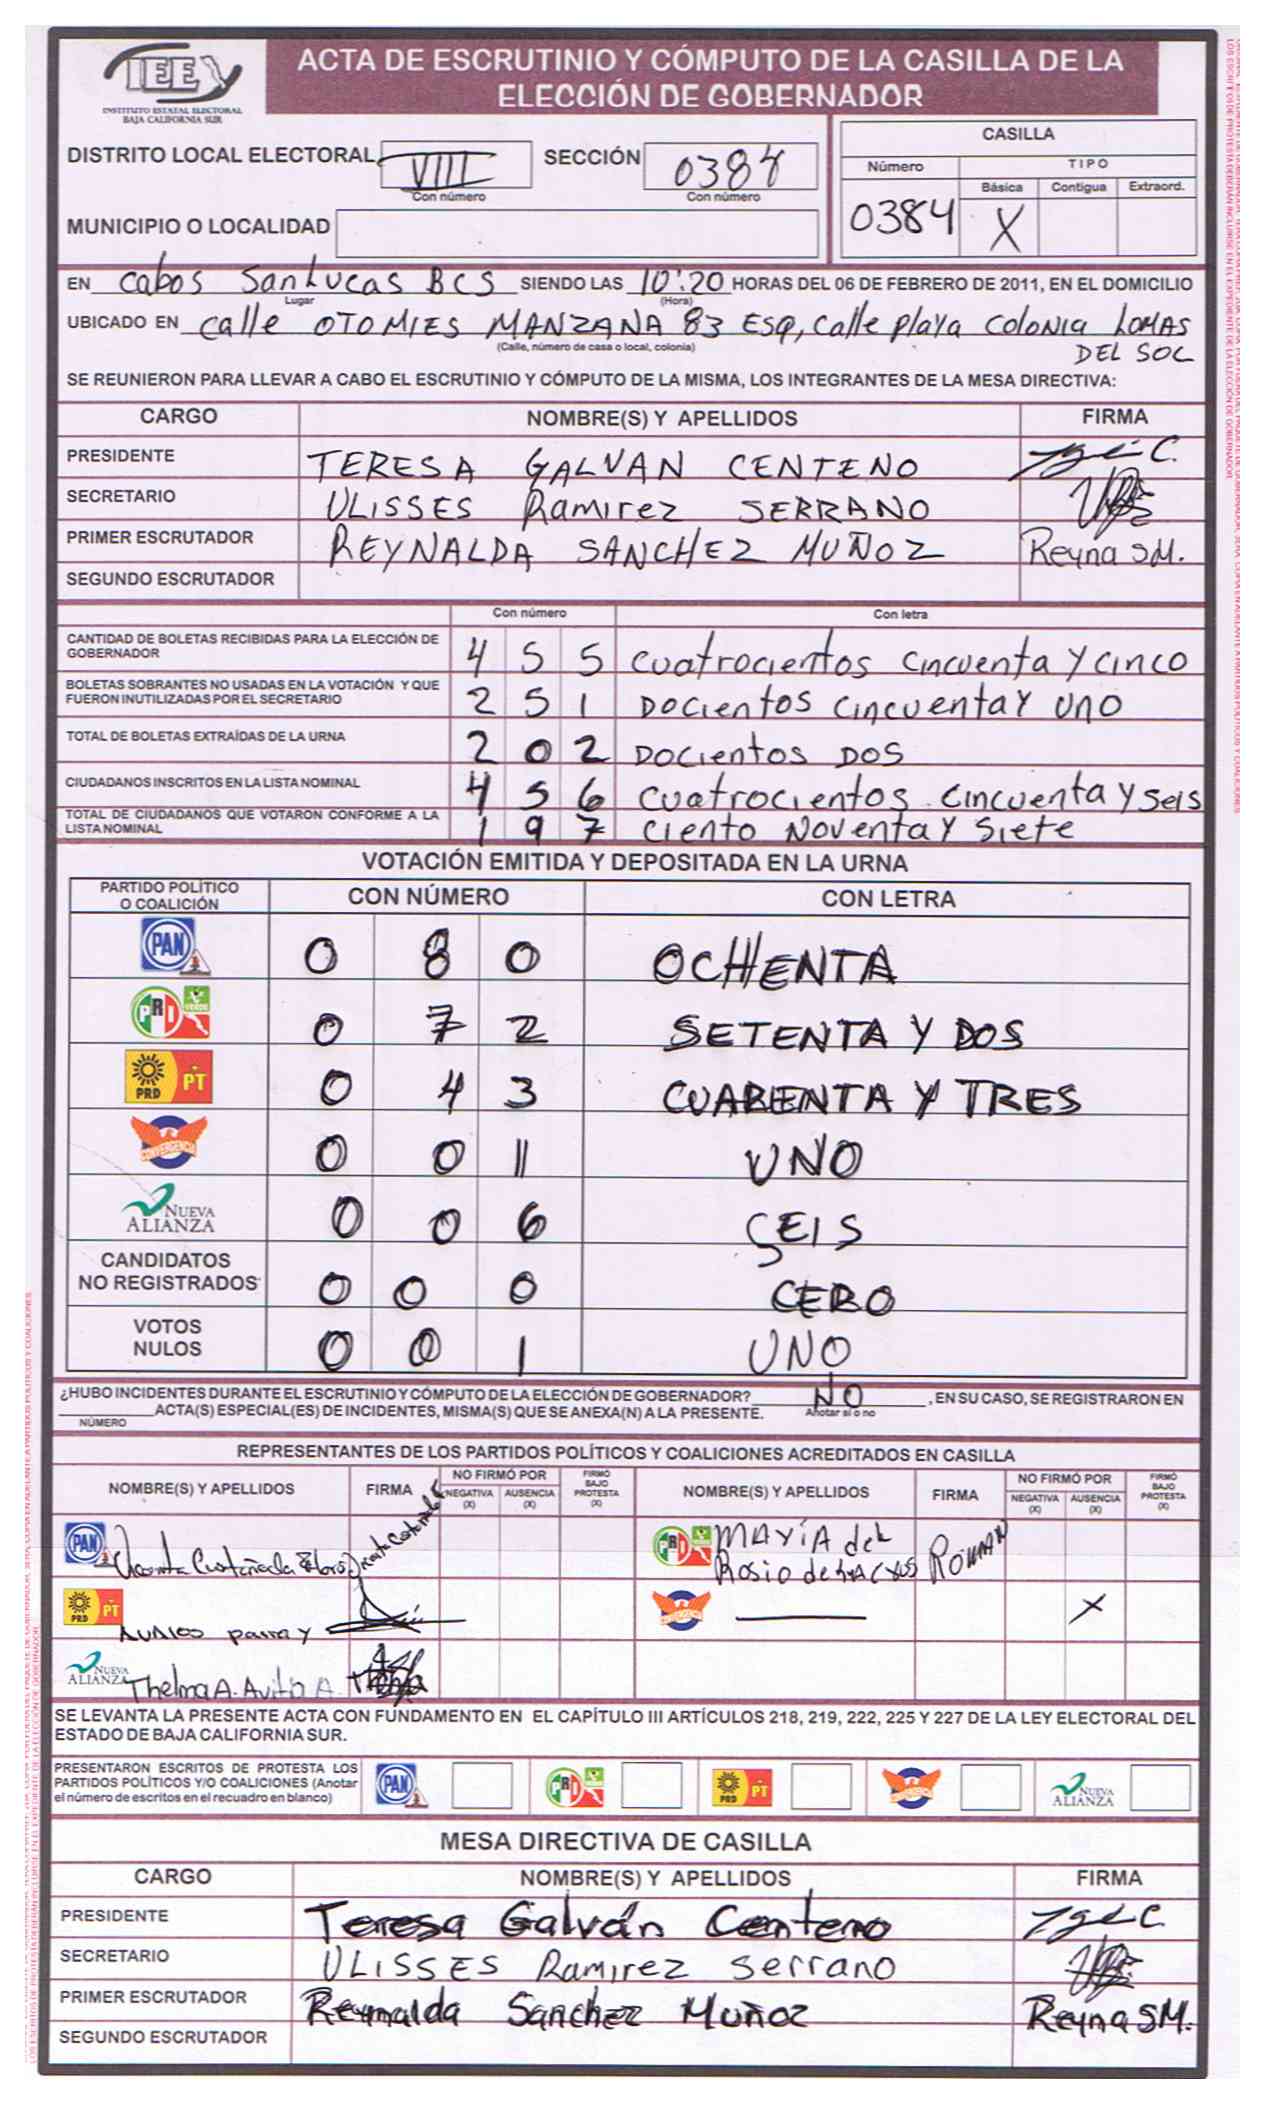 IEE
INSTITUTO ESTATAL ELECTORAL
BAJA CALIFORNIA SUR
ACTA DE ESCRUTINIO Y CÓMPUTO DE LA CASILLA DE LA
ELECCIÓN DE GOBERNADOR
DISTRITO LOCAL ELECTORAL VIII SECCIÓN 0384
Con número Con número
MUNICIPIO O LOCALIDAD
CASILLA
Número TIPO
Básica Contigua Extraord.
0384 X
EN Cabos San Lucas BCS SIENDO LAS 10:20 HORAS DEL 06 DE FEBRERO DE 2011, EN EL DOMICILIO
Lugar (Hora)
UBICADO EN calle OTOMIES MANZANA 83 ESQ, calle playa COLONIA LOMAS
(Calle, número de casa o local, colonia)
DEL SOL
SE REUNIERON PARA LLEVAR A CABO EL ESCRUTINIO Y CÓMPUTO DE LA MISMA, LOS INTEGRANTES DE LA MESA DIRECTIVA:
CARGO NOMBRE(S) Y APELLIDOS FIRMA
PRESIDENTE TERESA GALVAN CENTENO
SECRETARIO ULISSES Ramirez SERRANO
PRIMER ESCRUTADOR REYNALDA SANCHEZ MUÑOZ Reyna SM.
SEGUNDO ESCRUTADOR
Con número Con letra
CANTIDAD DE BOLETAS RECIBIDAS PARA LA ELECCIÓN DE
GOBERNADOR 4 5 5 cuatrocientos cincuenta y cinco
BOLETAS SOBRANTES NO USADAS EN LA VOTACIÓN Y QUE
FUERON INUTILIZADAS POR EL SECRETARIO 2 5 1 Docientos cincuenta y uno
TOTAL DE BOLETAS EXTRAÍDAS DE LA URNA 2 0 2 Docientos Dos
CIUDADANOS INSCRITOS EN LA LISTA NOMINAL 4 5 6 cuatrocientos cincuenta y seis
TOTAL DE CIUDADANOS QUE VOTARON CONFORME A LA
LISTA NOMINAL 1 9 7 ciento Noventa y siete
VOTACIÓN EMITIDA Y DEPOSITADA EN LA URNA
PARTIDO POLÍTICO
O COALICIÓN CON NÚMERO CON LETRA
PAN 0 8 0 OCHENTA
PRI VERDE 0 7 2 SETENTA Y DOS
PRD PT 0 4 3 CUARENTA Y TRES
CONVERGENCIA 0 0 1 UNO
NUEVA ALIANZA 0 0 6 SEIS
CANDIDATOS
NO REGISTRADOS 0 0 0 CERO
VOTOS
NULOS 0 0 1 UNO
¿HUBO INCIDENTES DURANTE EL ESCRUTINIO Y CÓMPUTO DE LA ELECCIÓN DE GOBERNADOR? NO, EN SU CASO, SE REGISTRARON EN
ACTA(S) ESPECIAL(ES) DE INCIDENTES, MISMA(S) QUE SE ANEXA(N) A LA PRESENTE. Anotar sí o no
NÚMERO
REPRESENTANTES DE LOS PARTIDOS POLÍTICOS Y COALICIONES ACREDITADOS EN CASILLA
NOMBRE(S) Y APELLIDOS FIRMA NO FIRMÓ POR NEGATIVA (X) AUSENCIA (X) FIRMÓ BAJO PROTESTA (X) NOMBRE(S) Y APELLIDOS FIRMA NO FIRMÓ POR NEGATIVA (X) AUSENCIA (X) FIRMÓ BAJO PROTESTA (X)
PAN Castañeda PRI MARIA del
Rosio ROMAN
PRD PT CONVERGENCIA X
NUEVA ALIANZA Thelma A. A.
SE LEVANTA LA PRESENTE ACTA CON FUNDAMENTO EN EL CAPÍTULO III ARTÍCULOS 218, 219, 222, 225 Y 227 DE LA LEY ELECTORAL DEL
ESTADO DE BAJA CALIFORNIA SUR.
PRESENTARON ESCRITOS DE PROTESTA LOS
PARTIDOS POLÍTICOS Y/O COALICIONES (Anotar
el número de escritos en el recuadro en blanco)
PAN PRI PRD PT CONVERGENCIA NUEVA ALIANZA
MESA DIRECTIVA DE CASILLA
CARGO NOMBRE(S) Y APELLIDOS FIRMA
PRESIDENTE Teresa Galván Centeno
SECRETARIO ULISSES Ramirez Serrano
PRIMER ESCRUTADOR Reynalda Sanchez Muñoz Reyna SM.
SEGUNDO ESCRUTADOR